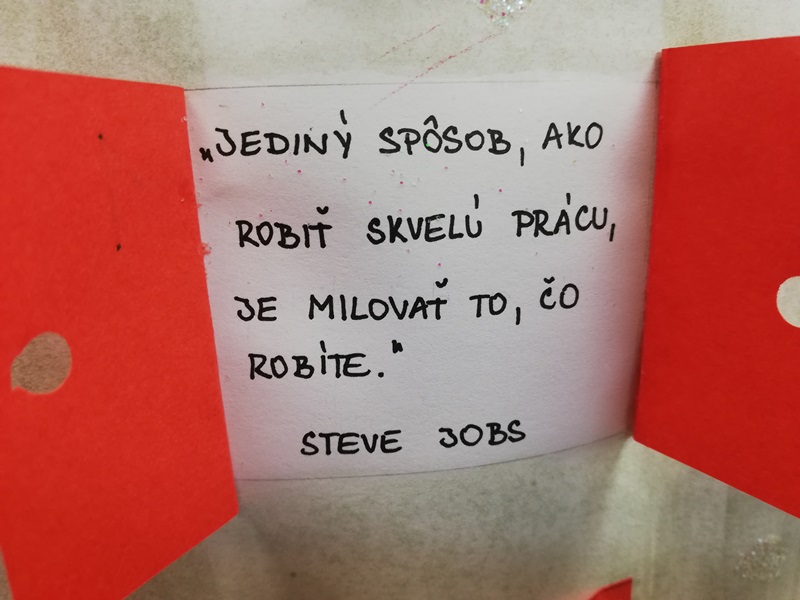 „JEDINÝ SPÔSOB, AKO
ROBIŤ SKVELÚ PRÁCU,
JE MILOVAŤ TO, ČO
ROBÍTE."
STEVE JOBS